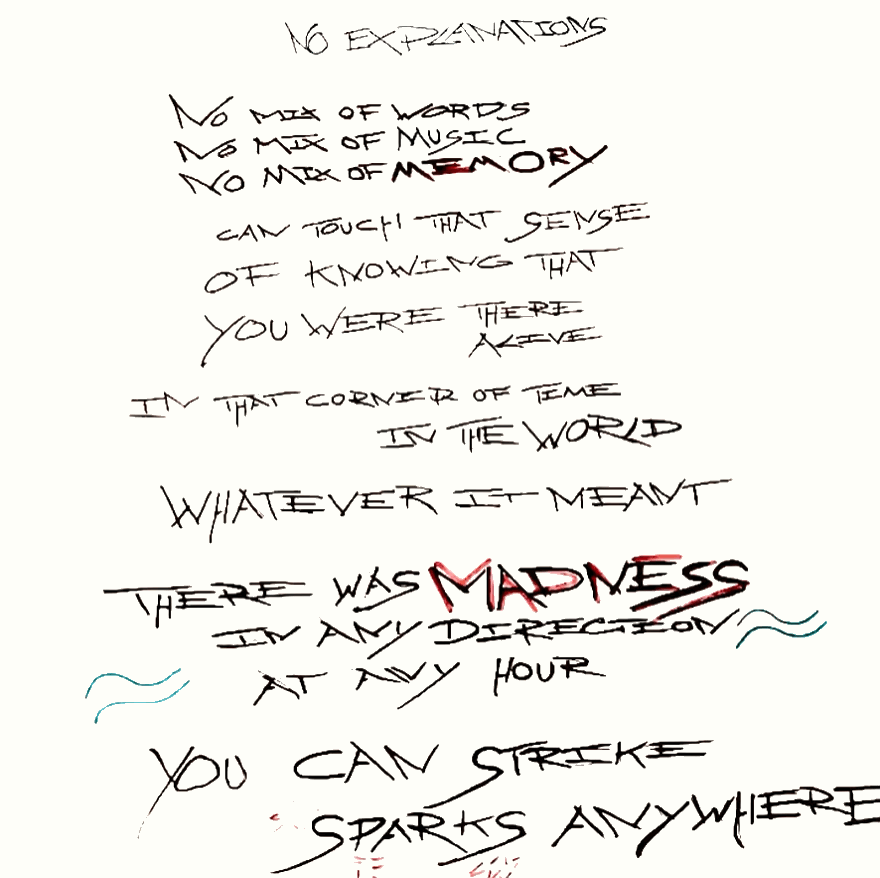 NO EXPLANATIONS
NO MIX OF WORDS
NO MIX OF MUSIC
NO MIX OF MEMORY
CAN TOUCH THAT SENSE
OF KNOWING THAT
YOU WERE THERE
ALIVE
IN THAT CORNER OF TIME
IN THE WORLD
WHATEVER IT MEANT
THERE WAS MADNESS
IN ANY DIRECTION
AT ANY HOUR
YOU CAN STRIKE
SPARKS ANYWHERE